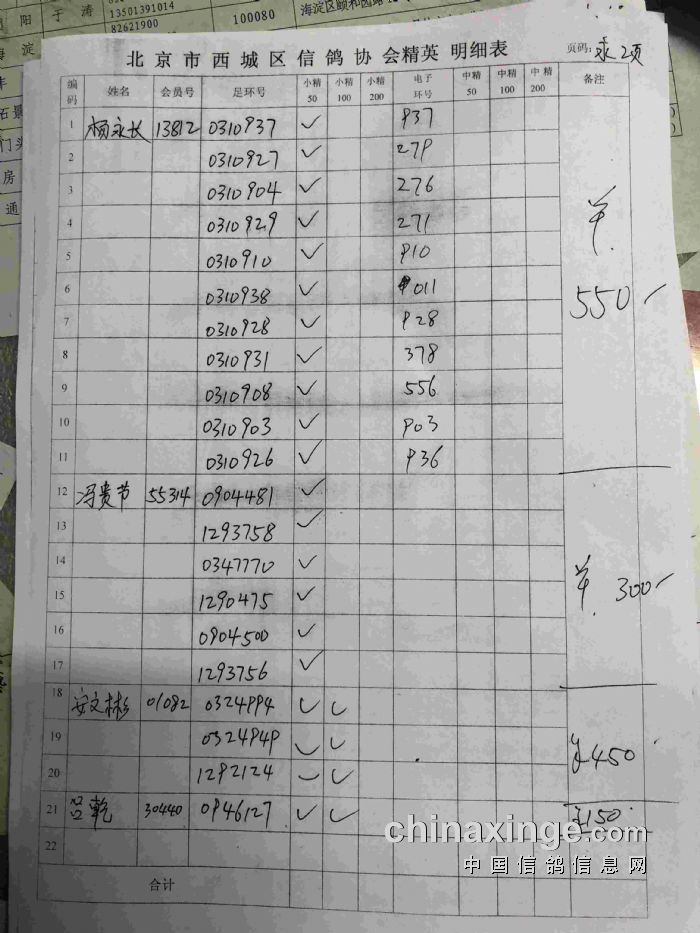 阳 于 涛 13501391014 82621900 100080
北 京 市 西 城 区 信 鸽 协 会精英 明细表 页码:
编码 姓名 会员号 足环号 小精50 小精100 小精200 电子环号 中精50 中精100 中精200 备注
1 杨永长 13812 0310937 ✓ 937
2 0310927 ✓ 279
3 0310904 ✓ 276
4 0310929 ✓ 271
5 0310910 ✓ 910
6 0310938 ✓ 011
7 0310928 ✓ 928
8 0310931 ✓ 378
9 0310908 ✓ 556
10 0310903 ✓ 903
11 0310926 ✓ 936
¥550
12 冯贵节 55314 0904481 ✓
13 1293758 ✓
14 0347770 ✓
15 1290475 ✓
16 0904500 ✓
17 1293756 ✓
¥300
18 安文彬 01082 0324994 ✓ ✓
19 0324949 ✓ ✓
20 1292124 ✓ ✓
¥450
21 吕乾 30440 0946127 ✓ ✓ ¥150
22
合计
chinaxinge.com
中国信鸽信息网